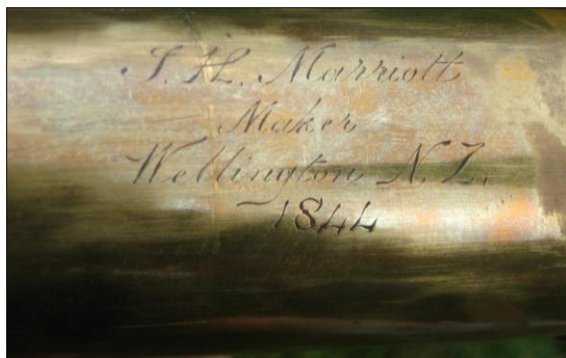 J. H. Marriott
Maker
Wellington N.Z.
1844